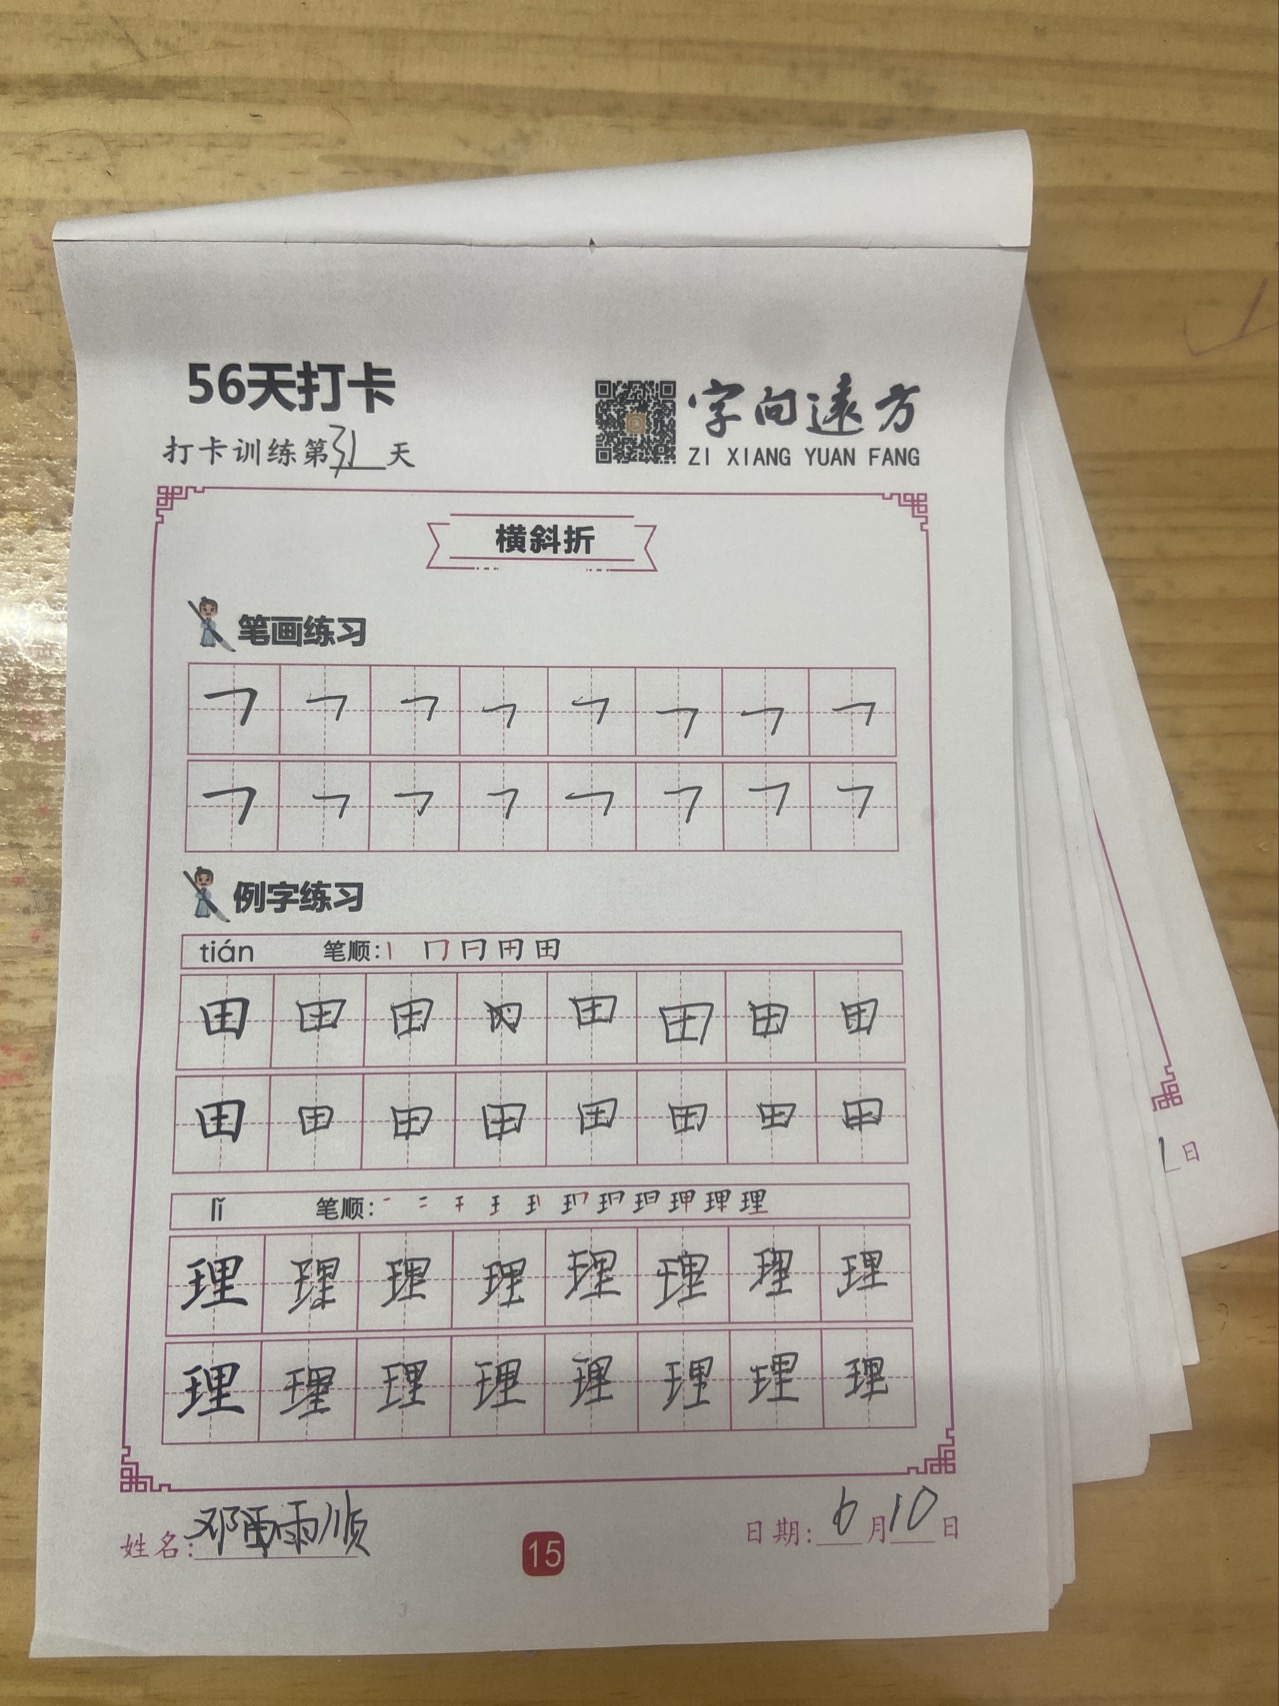 56天打卡
字向远方
打卡训练第31天
ZI XIANG YUAN FANG
横斜折
笔画练习
㇕ ㇕ ㇕ ㇕ ㇕ ㇕ ㇕ ㇕
㇕ ㇕ ㇕ ㇕ ㇕ ㇕ ㇕ ㇕
例字练习
tián 笔顺:丨 冂 冃 田 田
田 田 田 田 田 田 田
田 田 田 田 田 田 田 田
lǐ 笔顺:
理 理 理 理 理 理 理 理
理 理 理 理 理 理 理 理
姓名:邓雨顺
15
日期:6月10日
日